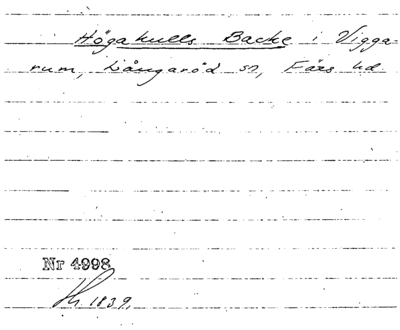 Högakulls Backe i Vigga-
rum, Långaröd sn, Färs hd.
Nr 4998
1839.